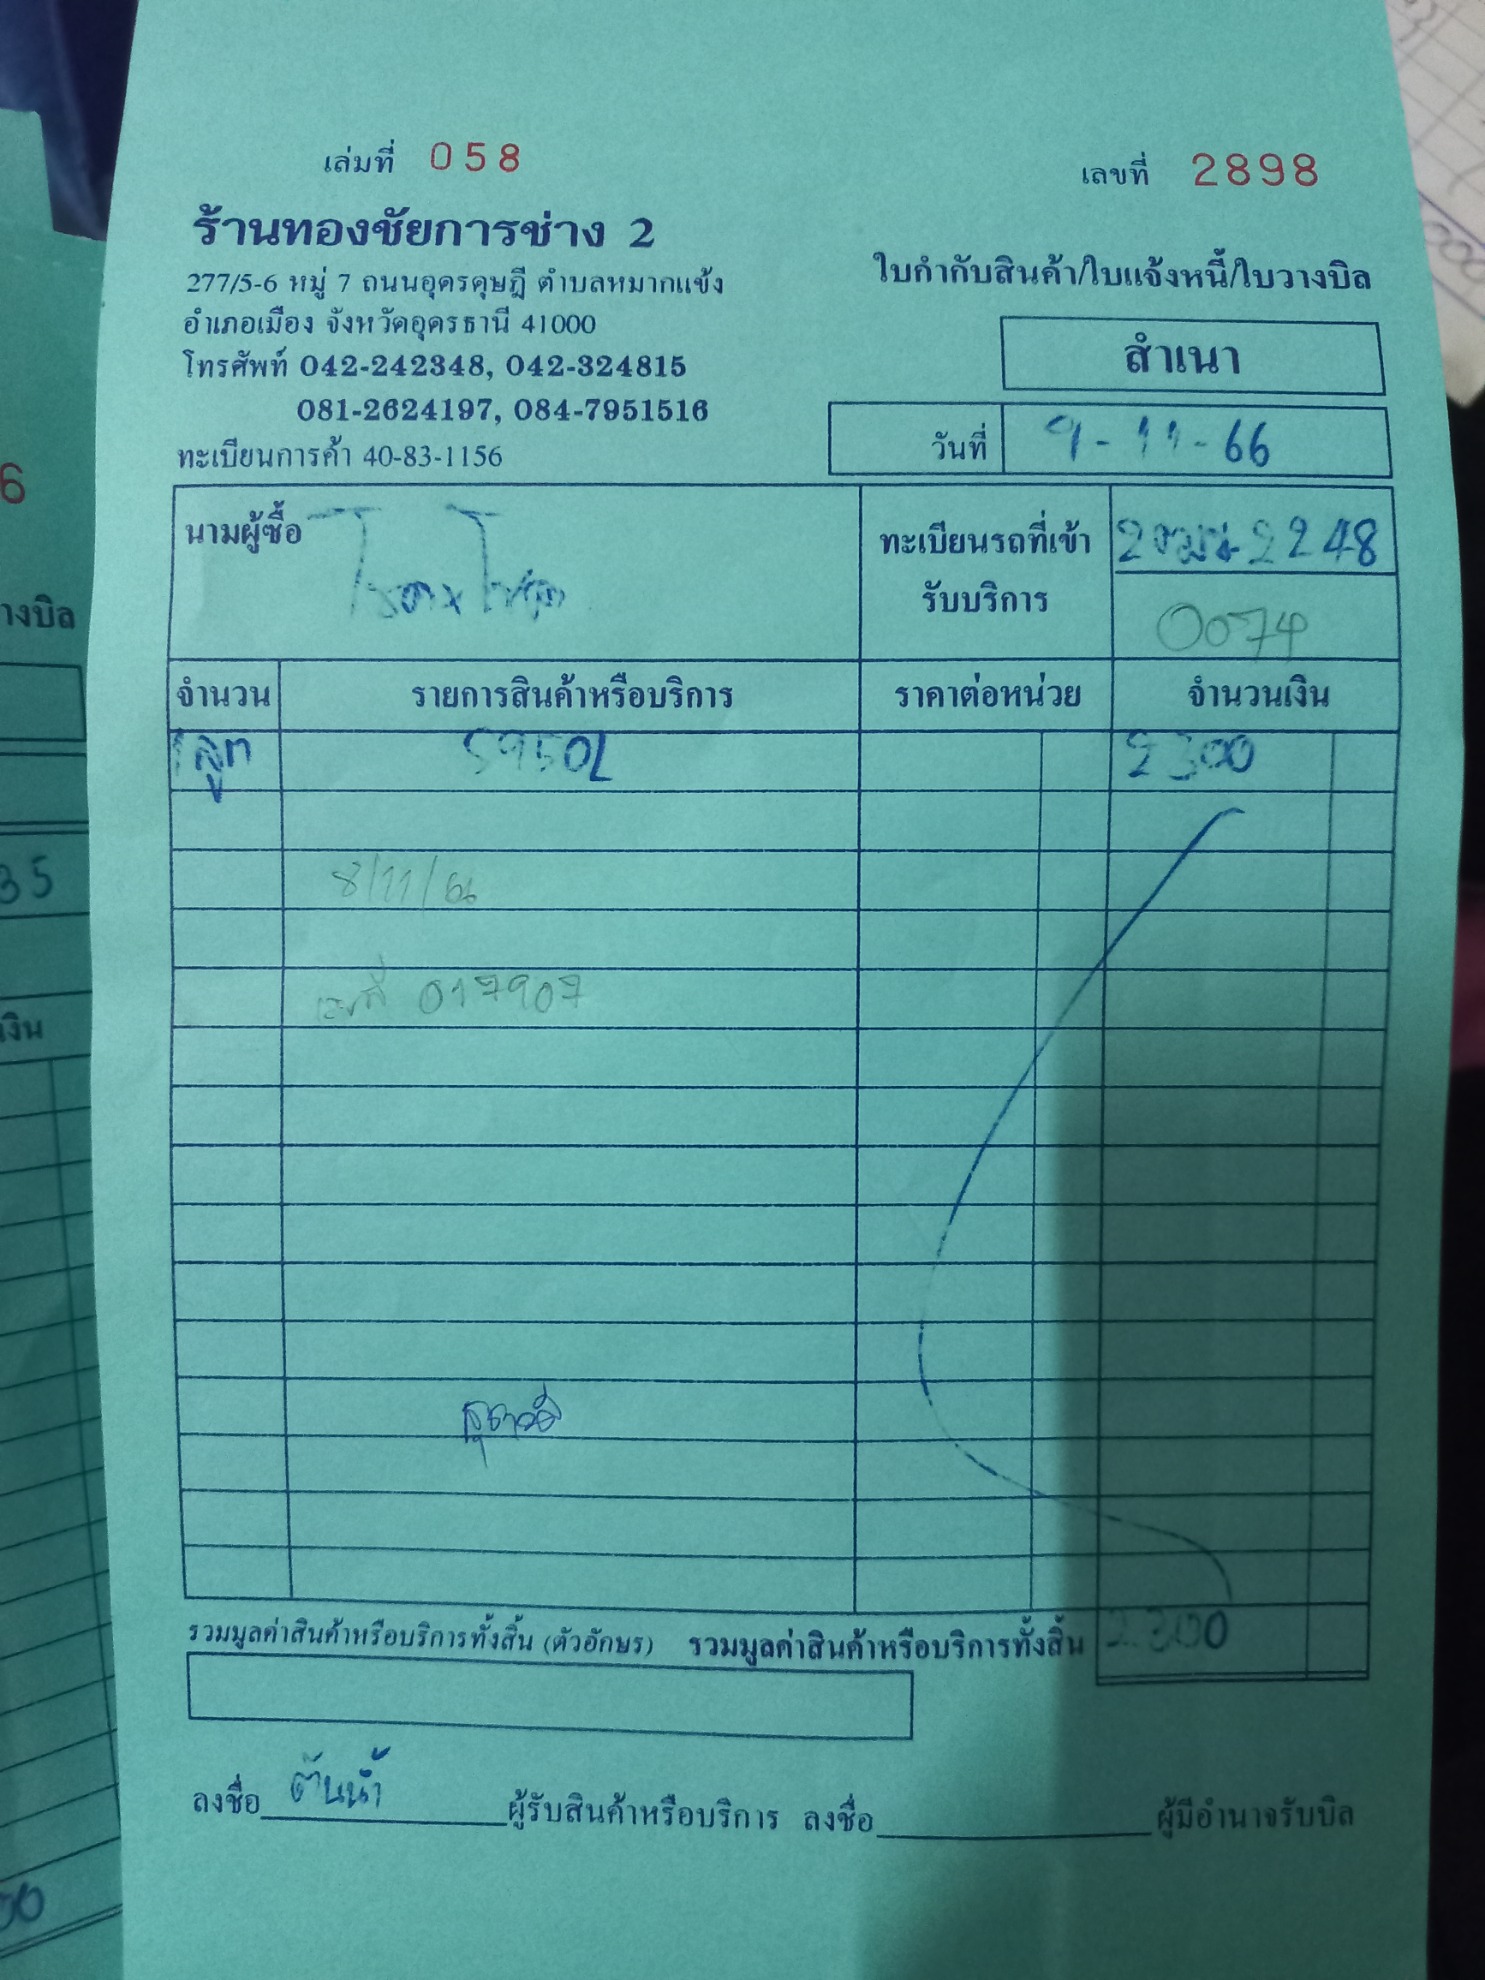 เล่มที่ 058
เลขที่ 2898
ร้านทองชัยการช่าง 2
277/5-6 หมู่ 7 ถนนอุดรดุษฎี ตำบลหมากแข้ง
อำเภอเมือง จังหวัดอุดรธานี 41000
โทรศัพท์ 042-242348, 042-324815
081-2624197, 084-7951516
ทะเบียนการค้า 40-83-1156
ใบกำกับสินค้า/ใบแจ้งหนี้/ใบวางบิล
สำเนา
วันที่ 9-11-66
นามผู้ซื้อ
ทะเบียนรถที่เข้า
รับบริการ
2248
0074
จำนวน รายการสินค้าหรือบริการ ราคาต่อหน่วย จำนวนเงิน
1 ลูก 2300
8/11/66
เลขที่ 017907
รวมมูลค่าสินค้าหรือบริการทั้งสิ้น (ตัวอักษร) รวมมูลค่าสินค้าหรือบริการทั้งสิ้น 2300
ลงชื่อ ต้นน้ำ ผู้รับสินค้าหรือบริการ ลงชื่อ ผู้มีอำนาจรับบิล
6
างบิล
35
งิน